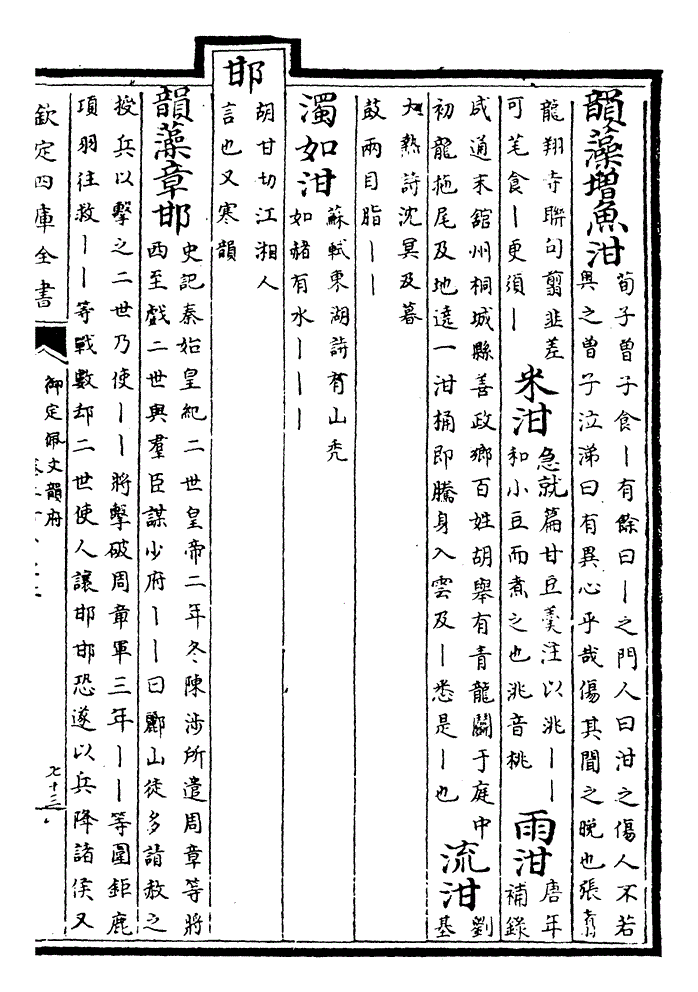 韻藻增魚泔
荀子曾子食丨有餘曰丨之門人曰泔之傷人不若
奧之曾子泣涕曰有異心乎哉傷其聞之晚也張賁
龍翔寺聯句翦韭差
可芼食丨更須丨
米泔
急就篇甘豆羹注以洮丨丨
和小豆而煮之也洮音桃
雨泔
唐年
補錄
咸通末舘州桐城縣善政鄉百姓胡舉有青龍鬭于庭中
初龍拖尾及地遶一泔桶即騰身入雲及丨悉是丨也
流泔
劉
基
大熱詩沈冥及暮
鼓兩目脂丨丨
濁如泔
蘇軾東湖詩有山禿
如赭有水丨丨丨
邯
胡甘切江湘人
言也又寒韻
韻藻章邯
史記秦始皇紀二世皇帝二年冬陳涉所遣周章等將
西至戲二世與羣臣謀少府丨丨曰酈山徒多請赦之
授兵以擊之二世乃使丨丨將擊破周章軍三年丨丨等圍鉅鹿
項羽往救丨丨等戰數却二世使人讓邯邯恐遂以兵降諸侯又
欽定四庫全書
御定佩文韻府
七十三